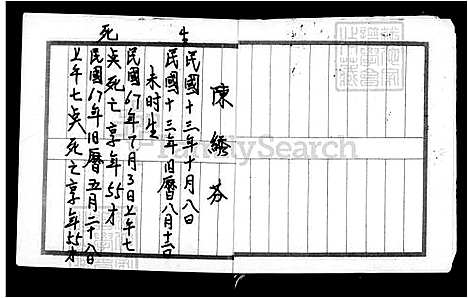 陳綉芬
生
民國十三年十月八日
民國十三年旧曆八月十一日
未时生
死
民國67年7月3日上午七
点死亡享年55才
民國67年旧曆五月二十八日
上午七点死亡享年55才
FamilySearch